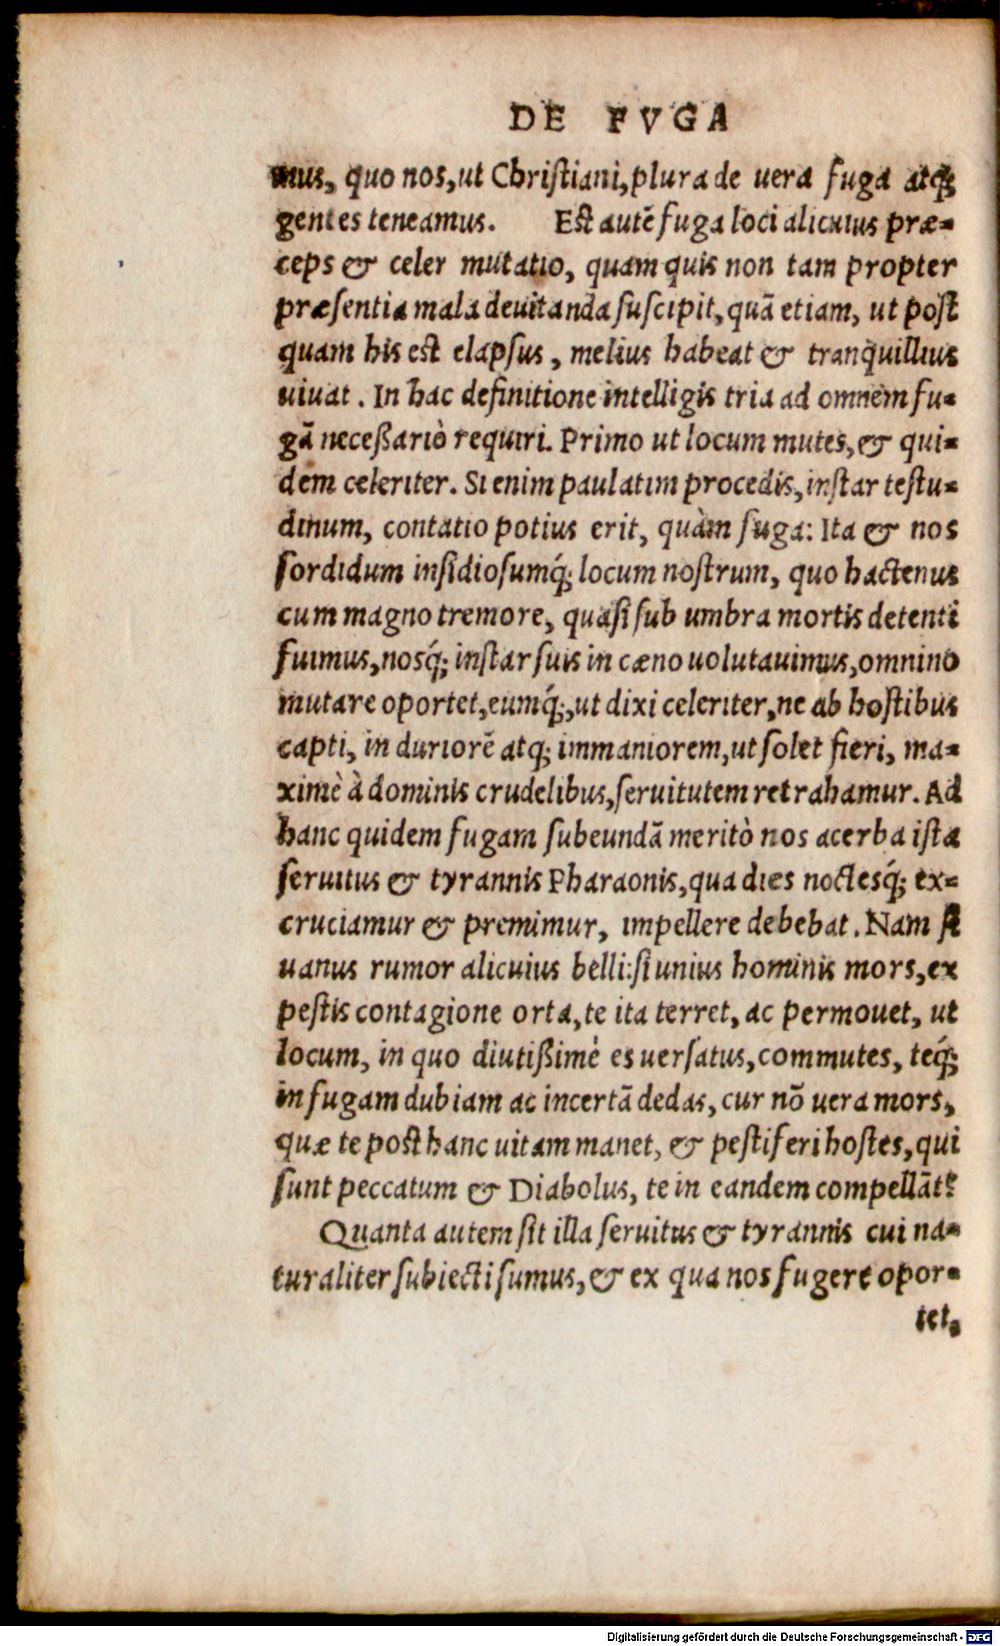 DE FVGA
mus, quo nos, ut Chriſtiani, plura de uera fuga atq́;
gentes teneamus. Eſt autē fuga loci alicuius præ-
ceps & celer mutatio, quam quis non tam propter
præſentia mala deuitanda ſuſcipit, quā etiam, ut poſt
quam his eſt elapſus, melius habeat & tranquillius
uiuat. In hac definitione intelligis tria ad omnem fu-
gā neceßariò requiri. Primo ut locum mutes, & qui-
dem celeriter. Si enim paulatim procedis, inſtar teſtu-
dinum, contatio potius erit, quàm fuga: Ita & nos
ſordidum inſidioſumq́; locum noſtrum, quo hactenus
cum magno tremore, quaſi ſub umbra mortis detenti
fuimus, nosq́; inſtar ſuis in cæno uolutauimus, omnino
mutare oportet, eumq́;, ut dixi celeriter, ne ab hoſtibus
capti, in duriorē atq; immaniorem, ut ſolet fieri, ma-
ximè à dominis crudelibus, ſeruitutem retrahamur. Ad
hanc quidem fugam ſubeundā meritò nos acerba iſta
ſeruitus & tyrannis Pharaonis, qua dies noctesq́; ex-
cruciamur & premimur, impellere debebat. Nam ſi
uanus rumor alicuius belli: ſi unius hominis mors, ex
peſtis contagione orta, te ita terret, ac permouet, ut
locum, in quo diutißimè es uerſatus, commutes, teq́;
in fugam dubiam ac incertā dedas, cur nō uera mors,
quæ te poſt hanc uitam manet, & peſtiferi hoſtes, qui
ſunt peccatum & Diabolus, te in eandem compellāt?
Quanta autem ſit illa ſeruitus & tyrannis cui na-
turaliter ſubiecti ſumus, & ex qua nos fugere opor-
tet,
Digitalisierung gefördert durch die Deutsche Forschungsgemeinschaft - DFG